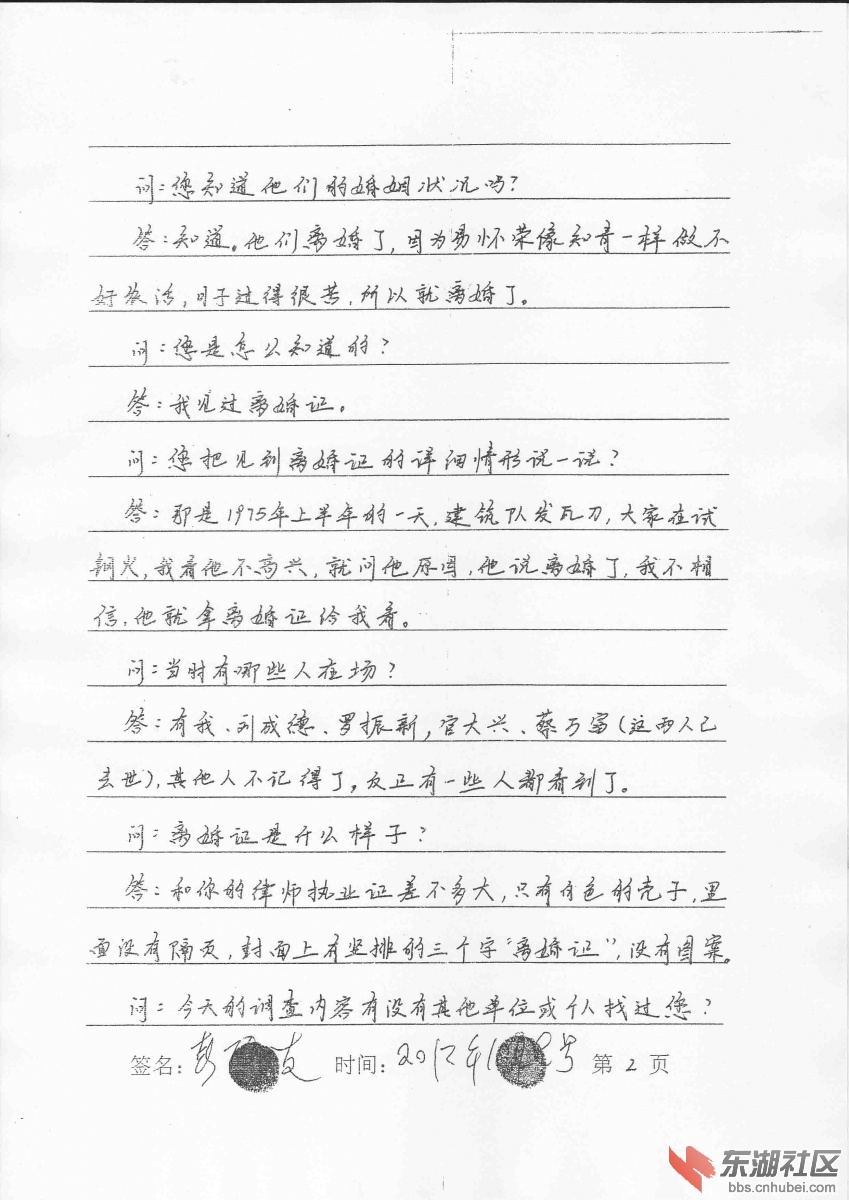 问:您知道他们的婚姻状况吗?
答:知道。他们离婚了,因为易怀荣像知青一样做不
好农活,日子过得很苦,所以就离婚了。
问:您是怎么知道的?
答:我见过离婚证。
问:您把见到离婚证的详细情形说一说?
答:那是1975年上半年的一天,建筑队发瓦刀,大家在试
钢火,我看他不高兴,就问他原因,他说离婚了,我不相
信,他就拿离婚证给我看。
问:当时有哪些人在场?
答:有我、刘成德、罗振新,官大兴、蔡万富(这两人已
去世),其他人不记得了,反正有一些人都看到了。
问:离婚证是什么样子?
答:和你的律师执业证差不多大,只有白色的壳子,里
面没有隔页,封面上有竖排的三个字“离婚证”,没有图案。
问:今天的调查内容有没有其他单位或个人找过您?
签名:彭 友 时间:2012年 号 第 2 页
东湖社区
bbs.cnhubei.com